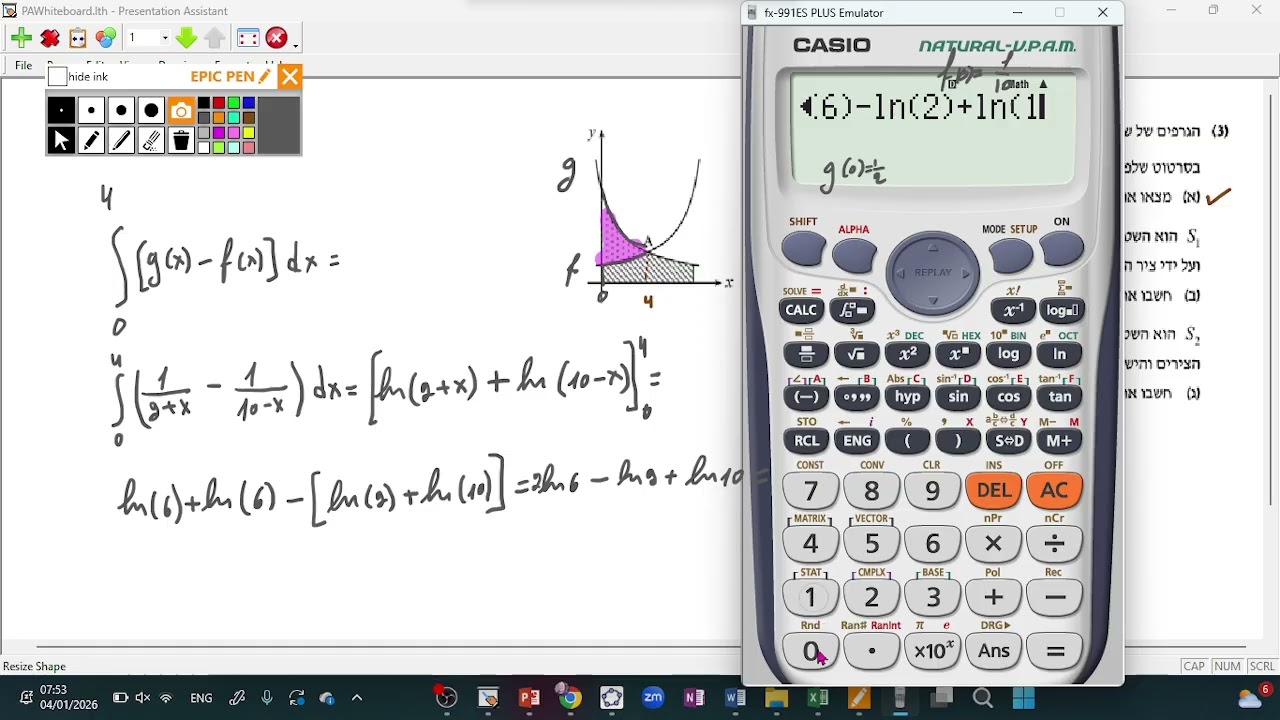 PAWhiteboard.lth - Presentation Assistant
1
File
hide ink
EPIC PEN
4
∫[g(x) - f(x)] dx =
0
4
∫(1/2+x - 1/10-x) dx = [ln(2+x) + ln(10-x)]
0
4
=
0
ln(6)+ln(6) - [ln(2)+ln(10)] = 2ln6 - ln2 + ln10 =
y
g
A
f
0
4
x
fx-991ES PLUS Emulator
CASIO NATURAL-V.P.A.M.
f(0)= 1/10
D Math ▲
(6)-ln(2)+ln(1
g(0)=1/2
SHIFT ALPHA MODE SETUP ON
REPLAY
SOLVE = d/dx : x! Σ=
CALC ∫ x⁻¹ log
³√ x³ DEC ˣ√ HEX 10ˣ BIN eˣ OCT
√ x² xⁿ log ln
∠ A ← B Abs C sin⁻¹ D cos⁻¹ E tan⁻¹ F
(−) °,,, hyp sin cos tan
STO ← i % , X a b/c⇔d/c Y M− M
RCL ENG ( ) S⇔D M+
CONST CONV CLR INS OFF
7 8 9 DEL AC
MATRIX VECTOR nPr nCr
4 5 6 × ÷
STAT CMPLX BASE Pol Rec
1 2 3 + −
Rnd Ran# RanInt π e DRG▶
0 . ×10ˣ Ans =
(3) הגרפים של
בסרטוט
(א) מצאו
S₁ הוא
ועל ידי ציר
(ב) חשבו
S₂ הוא
הצירים
(ג) חשבו
Resize Shape
CAP NUM SCRL
07:53
04/01/2026
ENG
zm
6